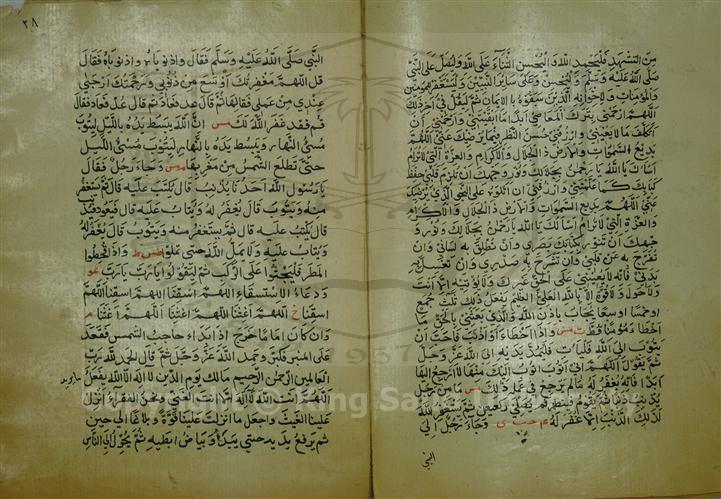 من التشهد فليحمد الله وليحسن الثناء على الله وليصل على النبي
صلى الله عليه وسلم وليحسن وعلى سائر النبيين وليستغفر للمؤمنين
والمؤمنات ولاخوانه الذين سبقوه بالايمان ثم ليقل في آخر ذلك
اللهم ارحمني بترك المعاصي ابدا ما ابقيتني وارحمني ان
اتكلف ما لا يعنيني وارزقني حسن النظر فيما يرضيك عني اللهم
بديع السموات والارض ذا الجلال والاكرام والعزة التي لا ترام
اسألك يا الله يا رحمن بجلالك ونور وجهك ان تلزم قلبي حفظ
كتابك كما علمتني وارزقني ان اتلوه على النحو الذي يرضيك
عني اللهم بديع السموات والارض ذا الجلال والاكرام
والعزة التي لا ترام اسألك يا الله يا رحمن بجلالك ونور و
جهك ان تنور بكتابك بصري وان تطلق به لساني وان
تفرج به عن قلبي وان تشرح به صدري وان تغسل به
بدني فانه لا يعينني على الحق غيرك ولا يؤتيه الا انت
ولا حول ولا قوة الا بالله العلي العظيم يفعل ذلك ثلث جمع
او خمسا او سبعا يجاب باذن الله والذي بعثني بالحق ما
اخطأ مؤمنا قط ت مس واذا اخطأ او اذنب فاحب ان
يتوب الى الله فليأت فليمد يديه الى الله عز وجل
ثم يقول اللهم اني اتوب اليك منها لا ارجع اليها
ابدا فانه يغفر له ما لم يرجع في عمله ذلك مس ما من رجل
يذنب ذنبا ثم يقوم فيتطهر ثم يصلي ركعتين ثم يستغفر الله
لذلك الذنب الا غفر له وجاء رجل الى
النبي
٢٨
النبي صلى الله عليه وسلم فقال واذنوباه واذنوباه فقال
قل اللهم مغفرتك اوسع من ذنوبي ورحمتك ارجى
عندي من عملي فقالها ثم قال عد فعاد ثم قال عد فعاد فقال
قم فقد غفر الله لك مس ان الله يبسط يده بالليل ليتوب
مسئ النهار ويبسط يده بالنهار ليتوب مسئ الليل
حتى تطلع الشمس من مغربها وجاء رجل فقال
يا رسول الله احدنا يذنب قال يكتب عليه قال ثم يستغفر
منه ويتوب قال يغفر له ويتاب عليه قال فيعود فيذنب
قال يكتب عليه قال ثم يستغفر منه ويتوب قال يغفر له
ويتاب عليه ولا يمل الله حتى تملوا واذا قحطوا
المطر فليجثوا على الركب ثم ليقولوا يا رب يا رب عو
ودعاء الاستسقاء اللهم اسقنا اللهم اسقنا اللهم
اسقنا خ اللهم اغثنا اللهم اغثنا اللهم اغثنا م
وان كان اماما خرج اذا بدا حاجب الشمس فقعد
على المنبر فكبر وحمد الله عز وجل ثم قال الحمد لله رب
العالمين الرحمن الرحيم مالك يوم الدين لا اله الا الله يفعل ما يريد
اللهم انت الله لا اله الا انت الغني ونحن الفقراء انزل
علينا الغيث واجعل ما انزلت علينا قوة وبلاغا الى حين
ثم يرفع يديه حتى يبدو بياض ابطيه ثم يحول الى الناس